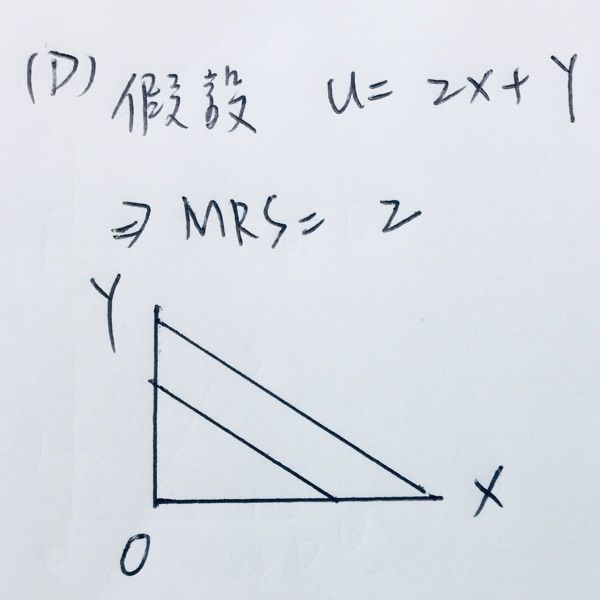 (D) 假設 U= 2X+Y
⇒ MRS= 2
Y
X
0